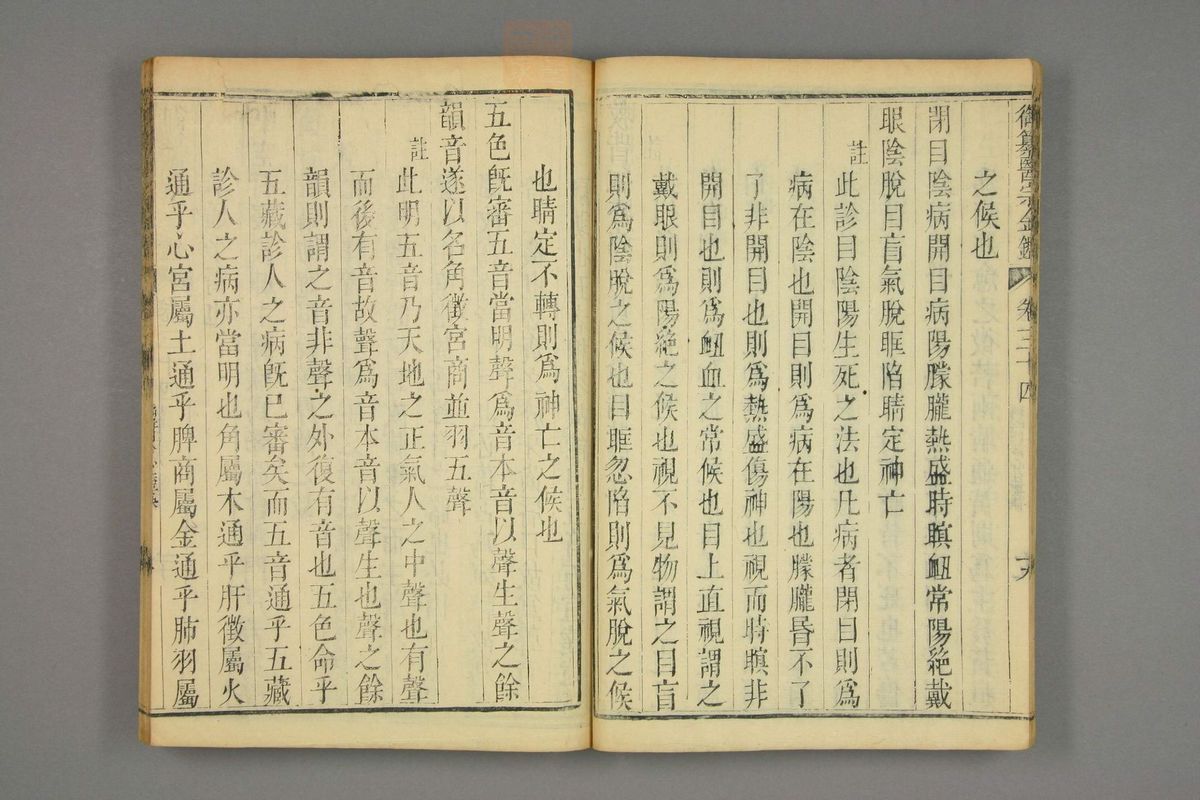 御纂醫宗金鑑 卷三十四
之候也
閉目陰病開目病陽朦朧熱盛時瞑衄常陽絕戴
眼陰脫目盲氣脫眶陷睛定神亡
註
此診目陰陽生死之法也凡病者閉目則爲
病在陰也開目則爲病在陽也朦朧昏不了
了非開目也則爲熱盛傷神也視而時瞑非
開目也則爲衄血之常候也目上直視謂之
戴眼則爲陽絕之候也視不見物謂之目盲
則爲陰脫之候也目眶忽陷則爲氣脫之候
也睛定不轉則爲神亡之候也
五色旣審五音當明聲爲音本音以聲生聲之餘
韻音遂以名角徵宮商並羽五聲
註
此明五音乃天地之正氣人之中聲也有聲
而後有音故聲爲音本音以聲生也聲之餘
韻則謂之音非聲之外復有音也五色命乎
五藏診人之病旣已審矣而五音通乎五藏
診人之病亦當明也角屬木通乎肝徵屬火
通乎心宮屬土通乎脾商屬金通乎肺羽屬